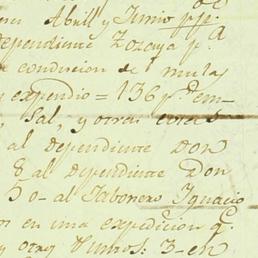 Abril y Junio pp.
dependiente Zozaya p.a
condusion de mulas
y expendio = 136 p.s em-
sal, y otros
al dependiente Don
8 al dependiente Don
50 - al Jabonero Ignacio
en una expedic.on q.e
y otros Vinos: 3 - en